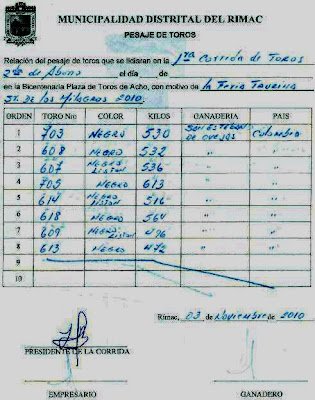 MUNICIPALIDAD DISTRITAL DEL RIMAC
PESAJE DE TOROS
Relación del pesaje de toros que se lidiaran en la 1ra Corrida de Toros
2da de Abono el día de
en la Bicentenaria Plaza de Toros de Acho, con motivo de la Feria Taurina
Sr. de los Milagros 2010.
ORDEN TORO Nro COLOR KILOS GANADERIA PAIS
1 703 NEGRO 530 SAN ESTEBAN DE OVEJAS Colombia
2 608 NEGRO 532 " "
3 607 NEGRO LISTON 536 " "
4 705 NEGRO 613 " "
5 614 NEGRO LISTON 516 " "
6 618 NEGRO 564 " "
7 609 NEGRO LISTON 496 " "
8 613 NEGRO 472 " "
9
10
Rimac, 03 de Noviembre de 2010
PRESIDENTE DE LA CORRIDA
EMPRESARIO GANADERO